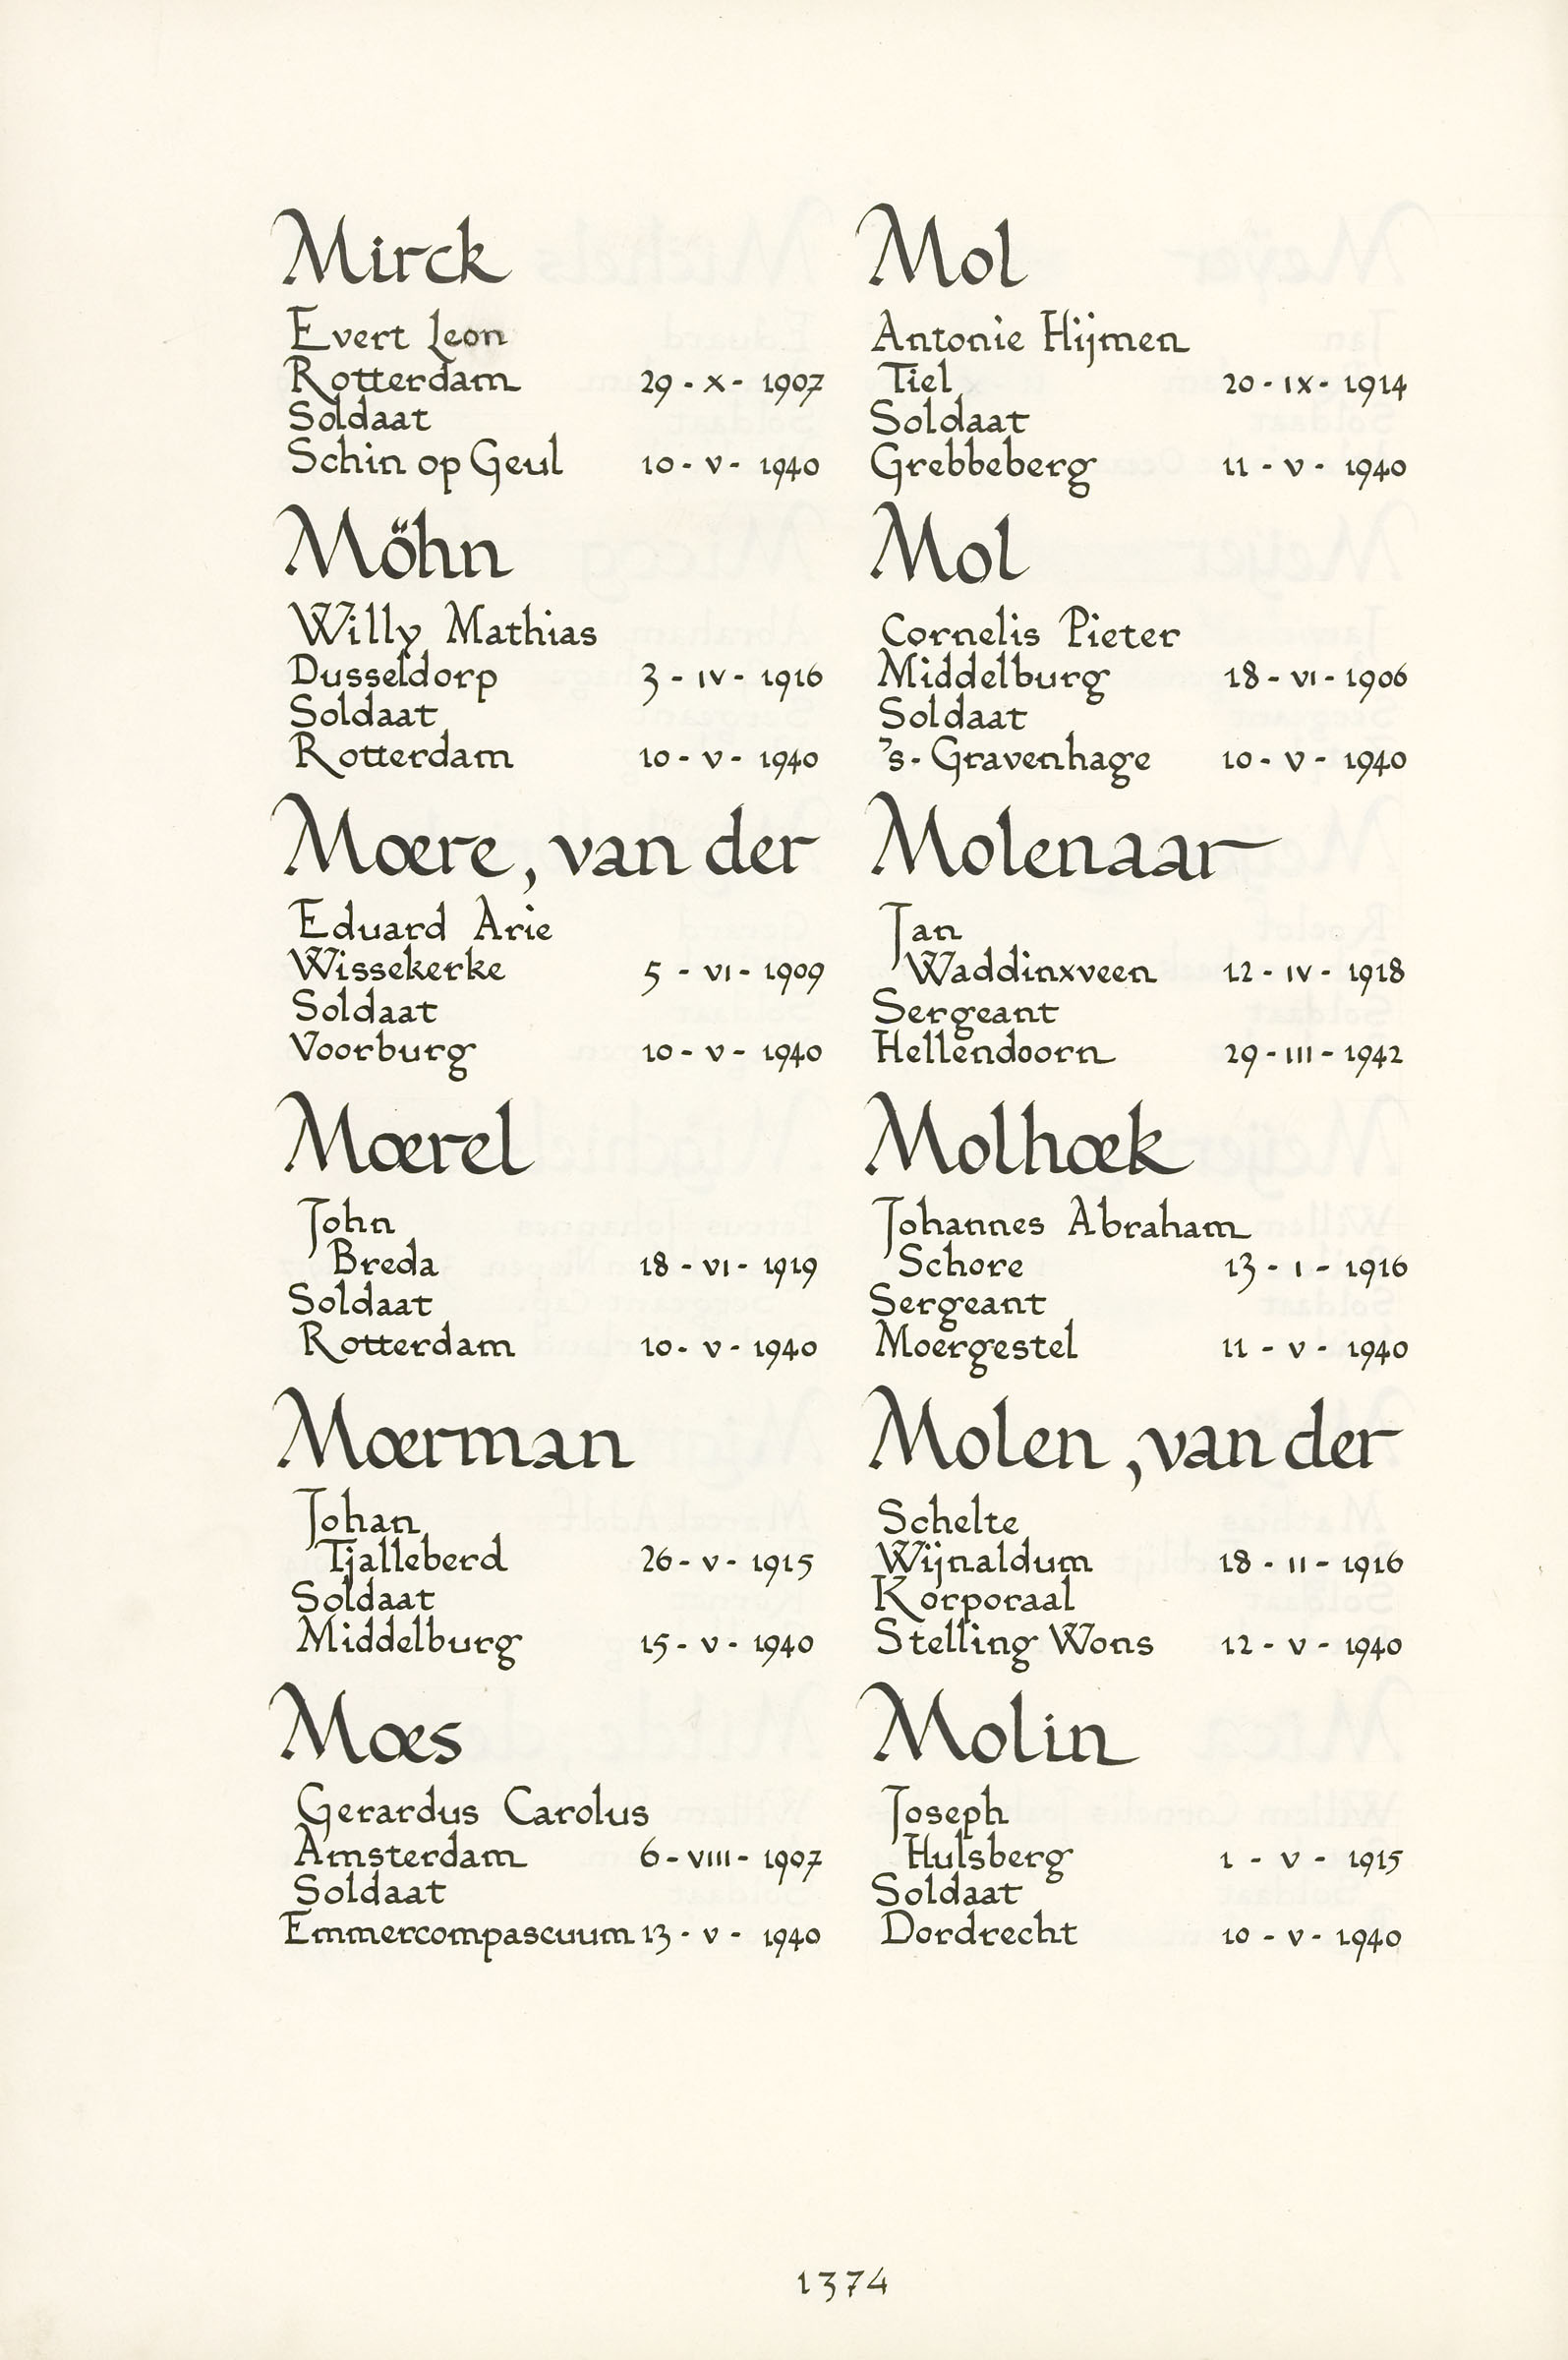 Mirck
Evert Leon
Rotterdam 29 - X - 1907
Soldaat
Schin op Geul 10 - V - 1940
Möhn
Willy Mathias
Dusseldorp 3 - IV - 1916
Soldaat
Rotterdam 10 - V - 1940
Mœre, van der
Eduard Arie
Wissekerke 5 - VI - 1909
Soldaat
Voorburg 10 - V - 1940
Mœrel
John
Breda 18 - VI - 1919
Soldaat
Rotterdam 10 - V - 1940
Mœrman
Johan
Tjalleberd 26 - V - 1915
Soldaat
Middelburg 15 - V - 1940
Mœs
Gerardus Carolus
Amsterdam 6 - VIII - 1907
Soldaat
Emmercompascuum 13 - V - 1940
Mol
Antonie Hijmen
Tiel 20 - IX - 1914
Soldaat
Grebbeberg 11 - V - 1940
Mol
Cornelis Pieter
Middelburg 18 - VI - 1906
Soldaat
's-Gravenhage 10 - V - 1940
Molenaar
Jan
Waddinxveen 12 - IV - 1918
Sergeant
Hellendoorn 29 - III - 1942
Molhœk
Johannes Abraham
Schore 13 - I - 1916
Sergeant
Moergestel 11 - V - 1940
Molen, van der
Schelte
Wijnaldum 18 - II - 1916
Korporaal
Stelling Wons 12 - V - 1940
Molin
Joseph
Hulsberg 1 - V - 1915
Soldaat
Dordrecht 10 - V - 1940
1374